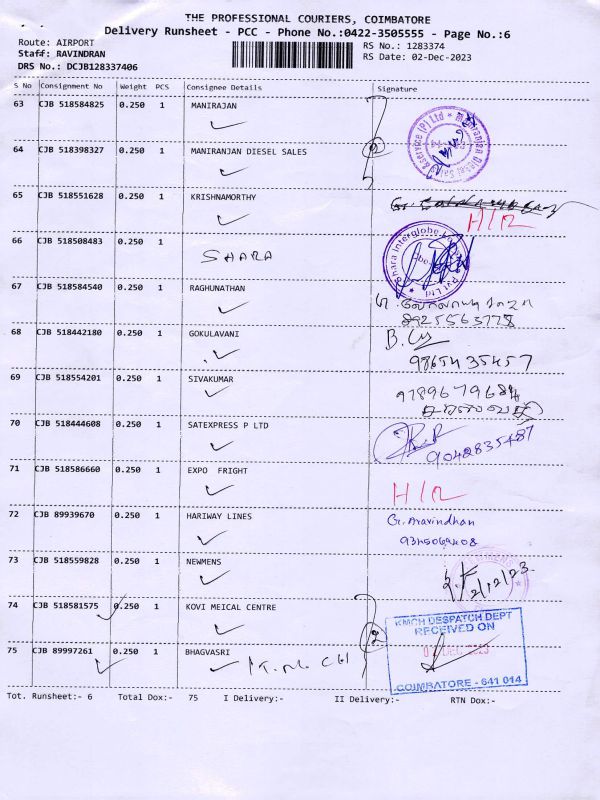 THE PROFESSIONAL COURIERS, COIMBATORE
Delivery Runsheet - PCC - Phone No.:0422-3505555 - Page No.:6
Route: AIRPORT RS No.: 1283374
Staff: RAVINDRAN RS Date: 02-Dec-2023
DRS No.: DCJB128337406
S No Consignment No Weight PCS Consignee Details Signature
63 CJB 518584825 0.250 1 MANIRAJAN
64 CJB 518398327 0.250 1 MANIRANJAN DIESEL SALES
65 CJB 518551628 0.250 1 KRISHNAMORTHY
H/R
66 CJB 518508483 0.250 1
SHARA
67 CJB 518584540 0.250 1 RAGHUNATHAN
8925563778
68 CJB 518442180 0.250 1 GOKULAVANI
9865435457
69 CJB 518554201 0.250 1 SIVAKUMAR
9789679684
70 CJB 518444608 0.250 1 SATEXPRESS P LTD
9042835487
71 CJB 518586660 0.250 1 EXPO FRIGHT
H/R
72 CJB 89939670 0.250 1 HARIWAY LINES
G. Aravindhan
73 CJB 518559828 0.250 1 NEWMENS
2/12/23.
74 CJB 518581575 0.250 1 KOVI MEICAL CENTRE
KMCH DESPATCH DEPT
RECEIVED ON
75 CJB 89997261 0.250 1 BHAGVASRI
DEC 2023
COIMBATORE - 641 014
Tot. Runsheet:- 6 Total Dox:- 75 I Delivery:- II Delivery:- RTN Dox:-